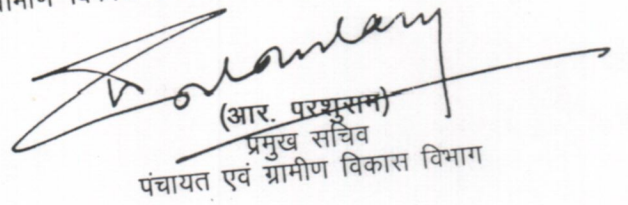 (आर. परशुराम)
प्रमुख सचिव
पंचायत एवं ग्रामीण विकास विभाग